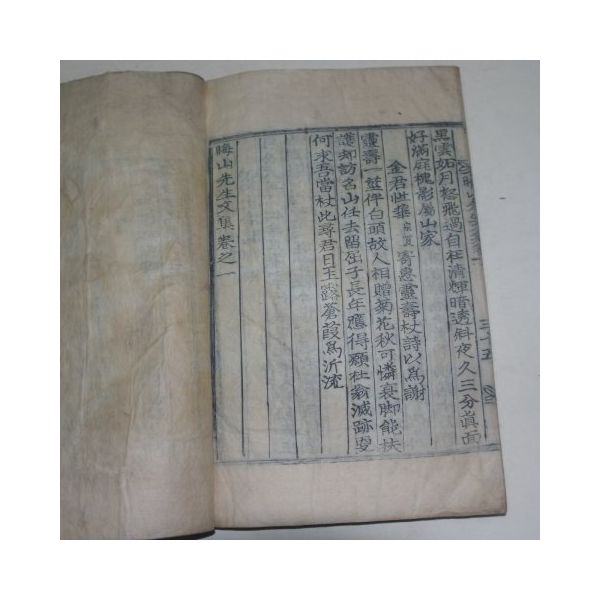 黑雲妬月怒飛過自在清輝暗透斜夜久三分眞面
好滿庭槐影屬山家
金君性集寄惠靈壽杖詩以爲謝
靈壽一莖伴白頭故人相贈菊花秋可憐衰脚能扶
護却訪名山任去留屈子長年應得顆杜翁滅跡更
何求吾當杖此尋君日玉露蒼葭爲泝流
晦山先生文集卷之一